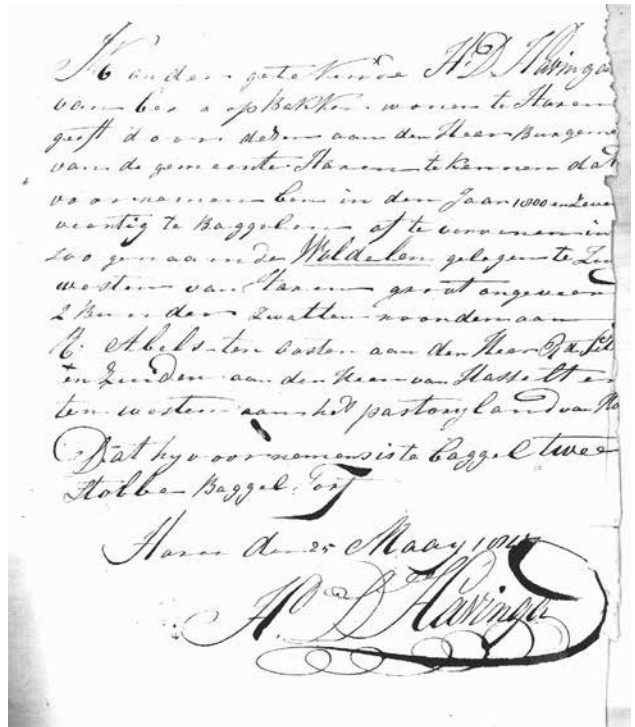 Ik ondergetekende H. D. Havinga
van ber o op Bakker wonen te Haren
geeft door desen aan den Heer Burgeme
van de gemeente Haren te kennen dat
voornemen ben in den Jaar 1800 en Zeven
veertig te Baggelen of te verveenen in
zoo genaamde Woldelen gelegen te Zui
westen van Haren groot ongeveer
2 Bunder Zwatten noorden aan
R. Abels ten oosten aan den Heer R de Sit
ten Zuiden aan den Heer van Hasselt en
ten westen aan het pastoryland van Ha
Dat hy voornemens is te baggel twee
Stobbe Baggel Torf
Haren den 25 Maay 1847
H. D. Havinga